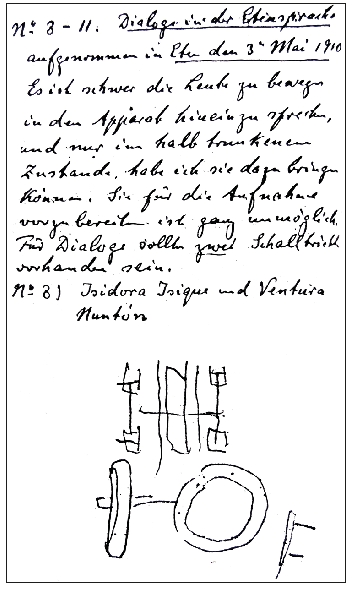 Nº 8 - 11. Dialoge in der Etensprache
aufgenommen in Eten den 3ⁿ Mai 1910
Es ist schwer die Leute zu bewegen
in den Apparat hineinzusprechen,
und nur im halb trunkenem
Zustande, habe ich sie dazu bringen
können. Sie für die Aufnahme
vorzubereiten ist ganz unmöglich
Für Dialoge sollten zwei Schalltrichter
vorhanden sein.
Nº 8) Isidora Isique und Ventura
Nuntón